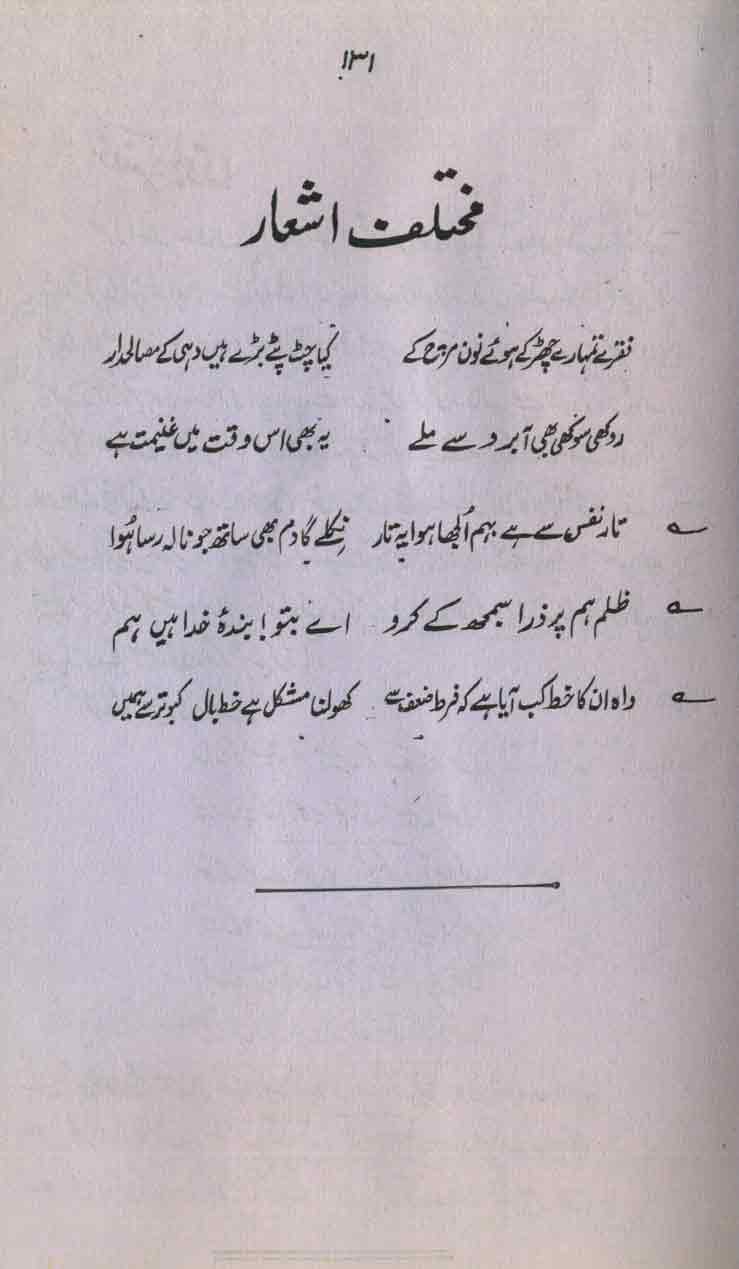 ۱۳۱
مختلف اشعار
فقرے تمہارے چھڑکے ہوئے نون مرچ کے کیا چٹ پٹے بڑے ہیں دہی کے مصالحدار
روکھی سوکھی بھی آبرو سے ملے یہ بھی اس وقت میں غنیمت ہے
تار نفس سے ہے بہم اُلجھا ہوا یہ تار نکلے گا دم بھی ساتھ جو نالہ رسا ہُوا
ظلم ہم پر ذرا سمجھ کے کرو اے بتو! بندۂ خدا ہیں ہم
واہ ان کا خط کب آیا ہے کہ فرط ضعف سے کھولنا مشکل ہے خط بال کبوتر سے ہمیں